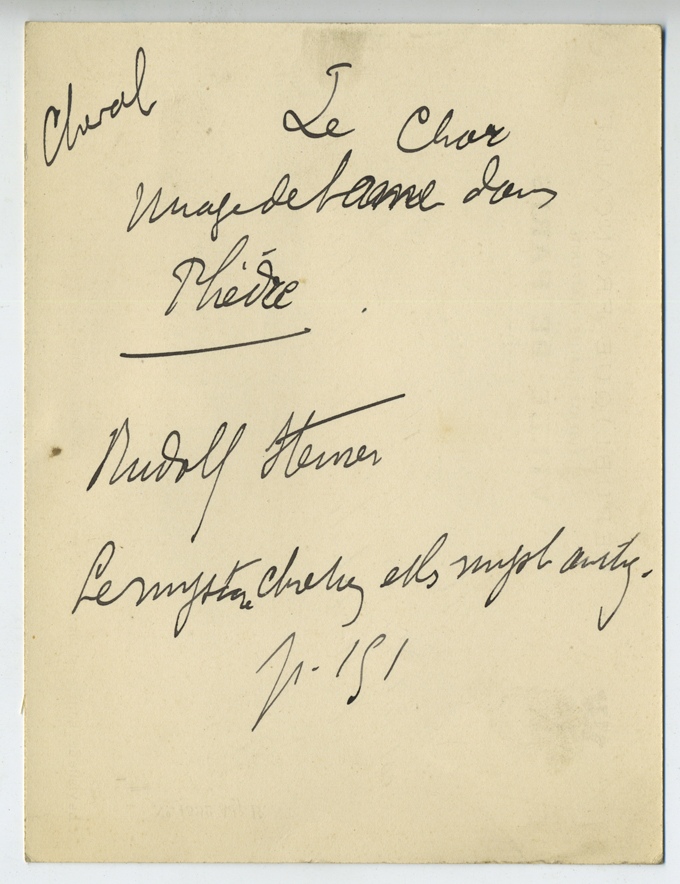 Cheval
Le Char
Image de l'ame dans
Phèdre
Rudolf Steiner
Le mystère chretien et les myst antiq.
p. 151